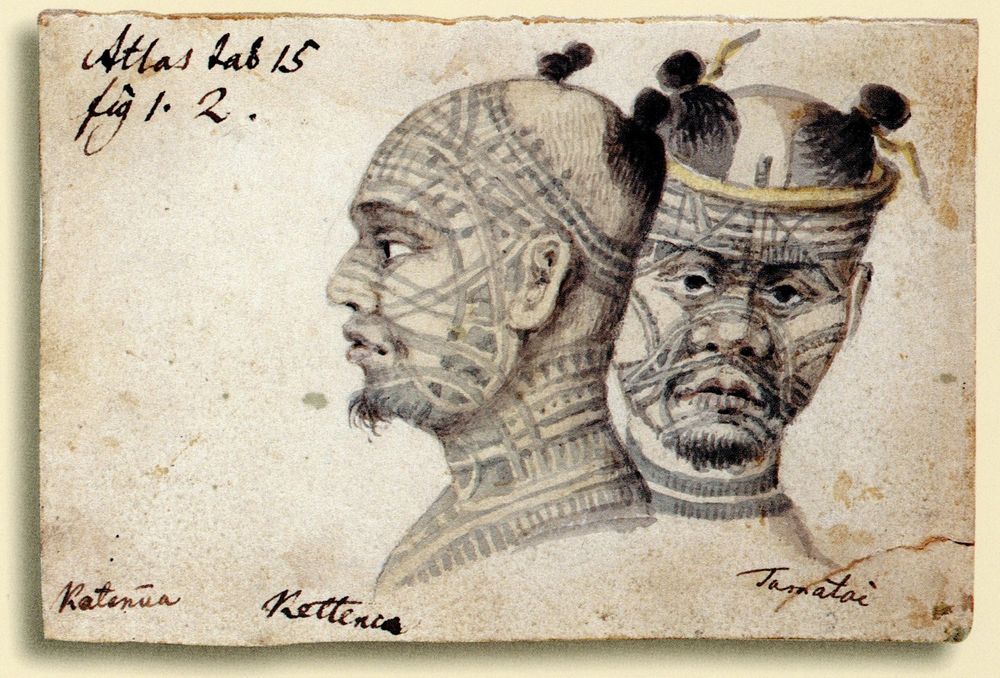 Atlas tab 15
fig 1. 2.
Katenūa
Kettenca
Tamatai